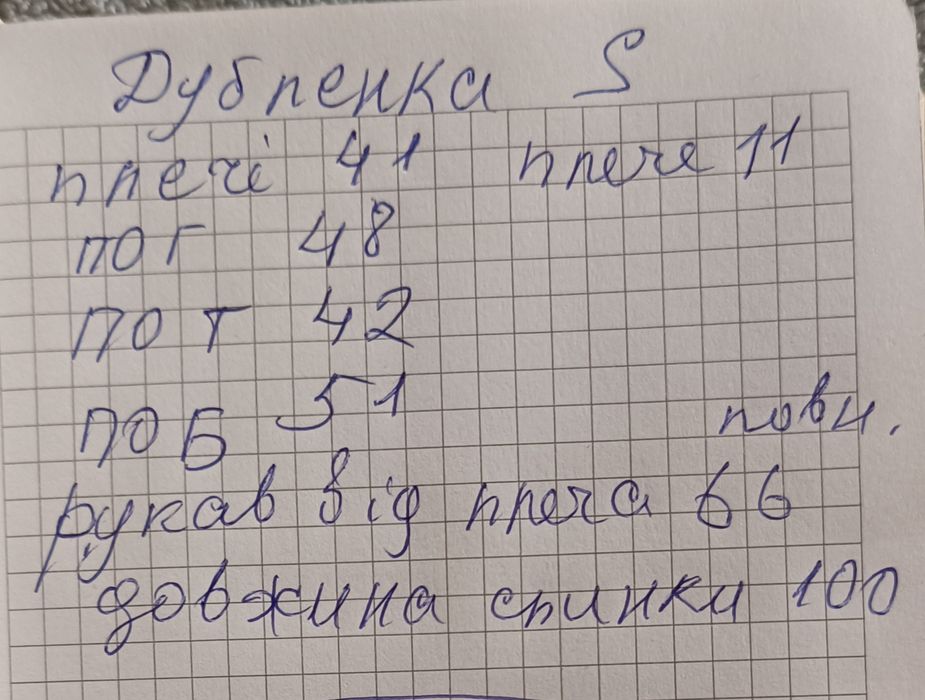 Дубленка S
плечі 41 плече 11
ПОГ 48
ПОТ 42
ПОБ 51
повн.
рукав від плеча 66
довжина спинки 100